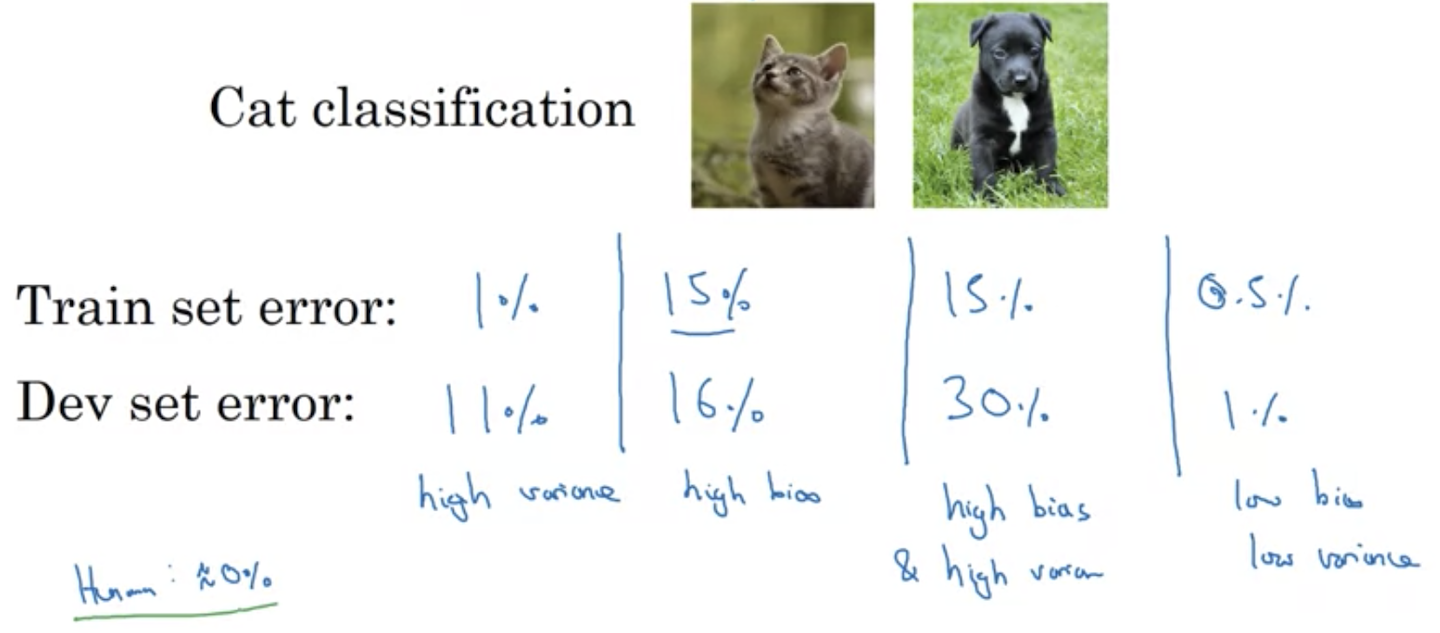 Cat classification
Train set error: 1% 15% 15% 0.5%
Dev set error: 11% 16% 30% 1%
high variance high bias high bias low bias
& high varian low variance
Human: ≈0%